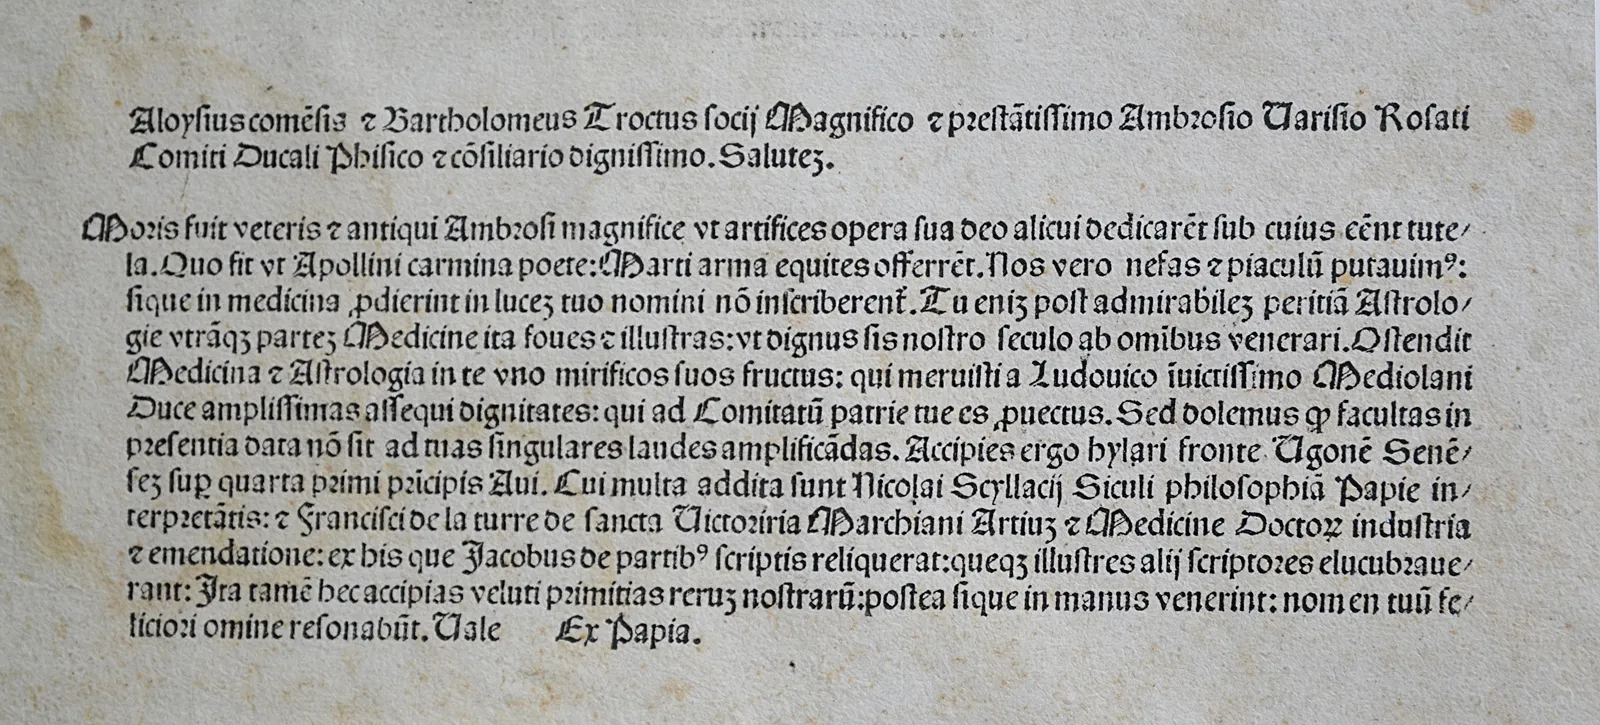 Aloysius comēsis ⁊ Bartholomeus Troctus socij Magnifico ⁊ prestātissimo Ambrosio Varisio Rosati
Comiti Ducali Phisico ⁊ cōsiliario dignissimo. Salutez.
Moris fuit veteris ⁊ antiqui Ambrosi magnifice vt artifices opera sua deo alicui dedicarēt sub cuius eēnt tute/
la. Quo fit vt Apollini carmina poete: Marti arma equites offerrēt. Nos vero nefas ⁊ piaculū putauimꝰ:
sique in medicina ꝓdierint in lucez tuo nomini nō inscriberent̄. Tu eniz post admirabilez peritiā Astrolo/
gie vtrāqꝫ partez Medicine ita foues ⁊ illustras: vt dignus sis nostro seculo ab omībus venerari. Ostendit
Medicina ⁊ Astrologia in te vno mirificos suos fructus: qui meruisti a Ludouico īuictissimo Mediolani
Duce amplissimas assequi dignitates: qui ad Comitatū patrie tue es ꝓuectus. Sed dolemus ꝙ facultas in
presentia data nō sit ad tuas singulares laudes amplificādas. Accipies ergo hylari fronte Ugonē Senē/
sez suꝑ quarta primi prīcipis Aui. Cui multa addita sunt Nicolai Scyllacij Siculi philosophiā Papie in/
terpretātis: ⁊ Francisci de la turre de sancta Victoriria Marchiani Artiuz ⁊ Medicine Doctoꝝ industria
⁊ emendatione: ex his que Jacobus de partibꝰ scriptis reliquerat: queqꝫ illustres alij scriptores elucubraue/
rant: Ita tamē hec accipias veluti primitias reruz nostrarū: postea sique in manus venerint: nomen tuū fe/
liciori omine resonabūt. Vale Ex Papia.